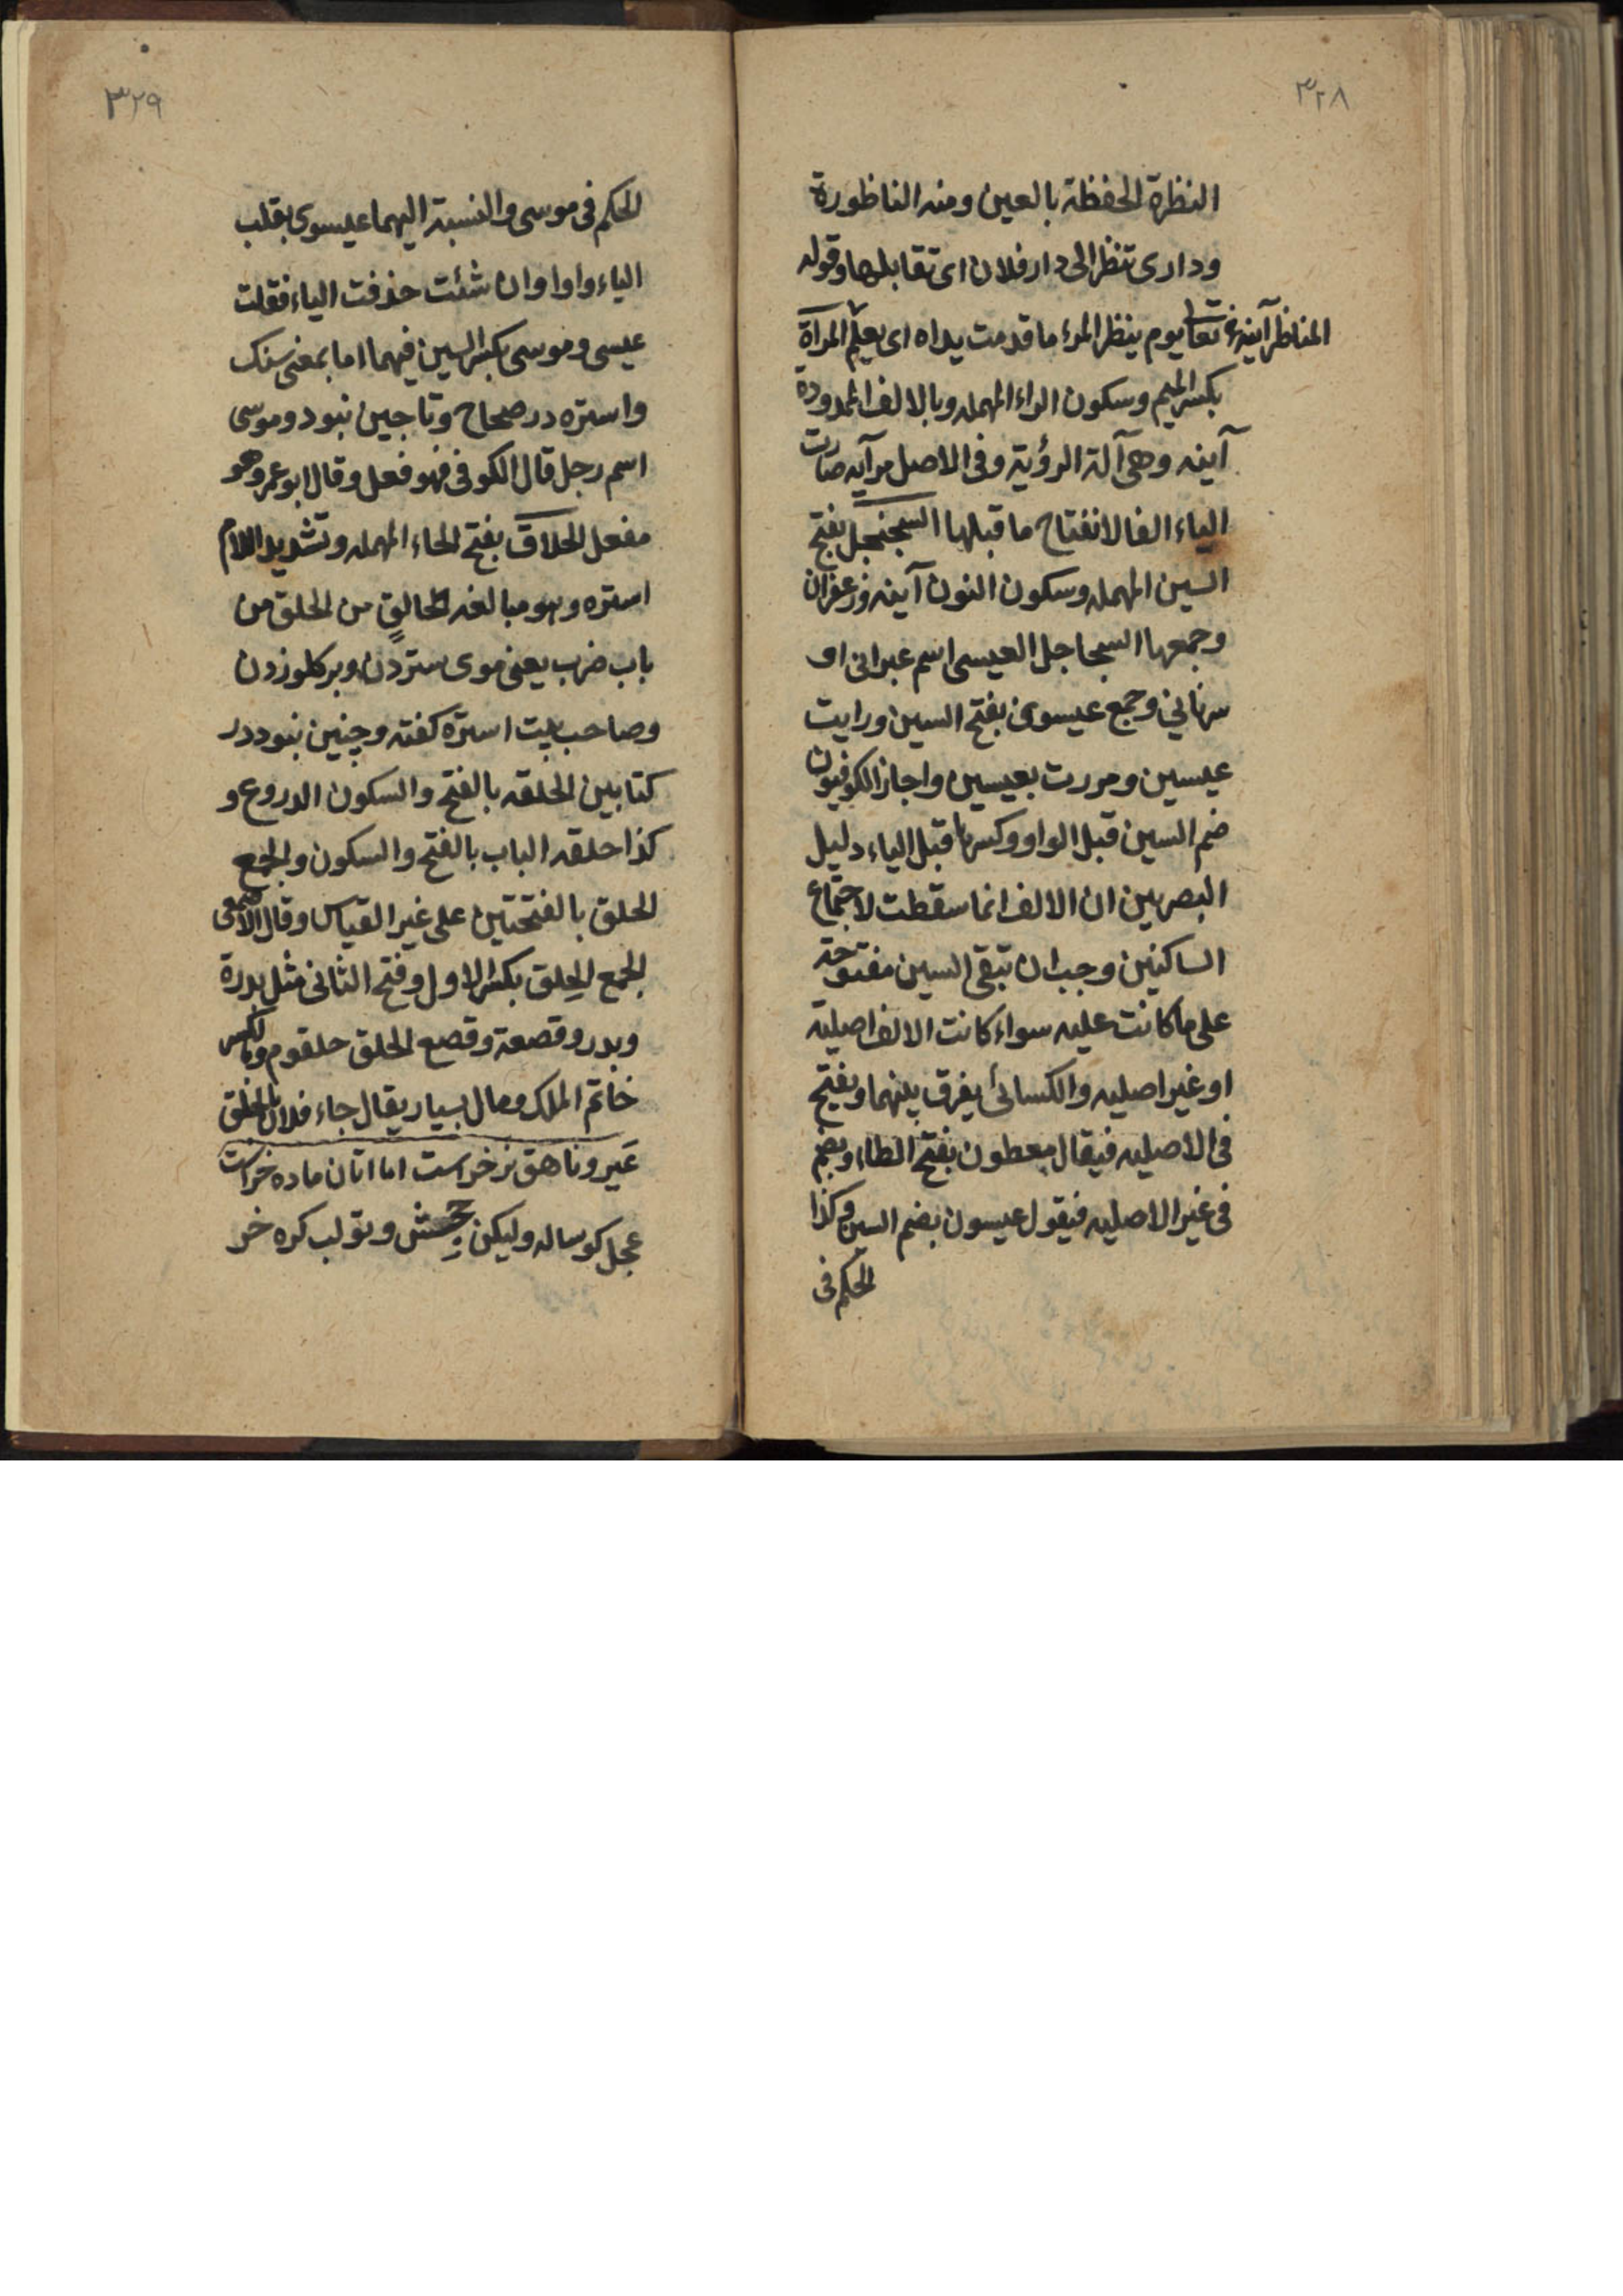 ٣٢٨
النظرة الحفظة بالعين ومنه الناظورة
ودارى تنظر الى دار فلان اى تقابلها وقوله
المناظر آينهء تعا يوم ينظر المرء ما قدمت يداه اى يعلم المرآة
بكسر الميم وسكون الراء المهمله وبالالف الممدودة
آينه وهى آلة الرؤية وفى الاصل مرآيه صارت
الياء الفا لانفتاح ما قبلها السجنجل بفتح
السين المهمله وسكون النون آينه وزعفران
وجمعها السجاجل العيسى اسم عبرانى او
سريانى وجمع عيسون بفتح السين ورايت
عيسين ومررت بعيسين واجاز الكوفيون
ضم السين قبل الواو وكسرها قبل الياء دليل
البصريين ان الالف انما سقطت لاجتماع
الساكنين وجب ان تبقى السين مفتوحة
على ما كانت عليه سواء كانت الالف اصلية
او غير اصليه والكسائى يفرق بينهما ويفتح
فى الاصليه فيقال معطون بفتح الطاء ويضم
فى غير الاصليه فيقول عيسون بضم السين وكذا
الحكم فى
٣٢٩
الحكم فى موسى والنسبة اليهما عيسوى بقلب
الياء واوا وان شئت حذفت الياء فقلت
عيسى وموسى بكسر السين فيهما اما بمعنى سنك
واستره در صحاح وتاجين نبود وموسى
اسم رجل قال الكوفى فهو فعل وقال ابو عمرو هو
مفعل الحلاق بفتح الحاء المهمله وتشديد اللام
استره وهو مبالغه الحالق من الحلق من
باب ضرب يعنى موى ستردن وبر كلو زدن
وصاحب بيت استره كفته وچنين نبود در
كتابين الحلقه بالفتح والسكون الدروع و
كذا حلقه الباب بالفتح والسكون والجمع
الحلق بالفتحتين على غير القياس وقال الاصمعى
الجمع الحِلق بكسر الاول وفتح الثانى مثل بدرة
وبدر وقصعة وقصع الحلق حلقوم وبالكسر
خاتم الملك ومال بسيار يقال جاء فلان بالحلق
عَير وناهق نر خراست اما اتان ماده خراست
عجل كوساله وليكن جحش وتولب كره خر